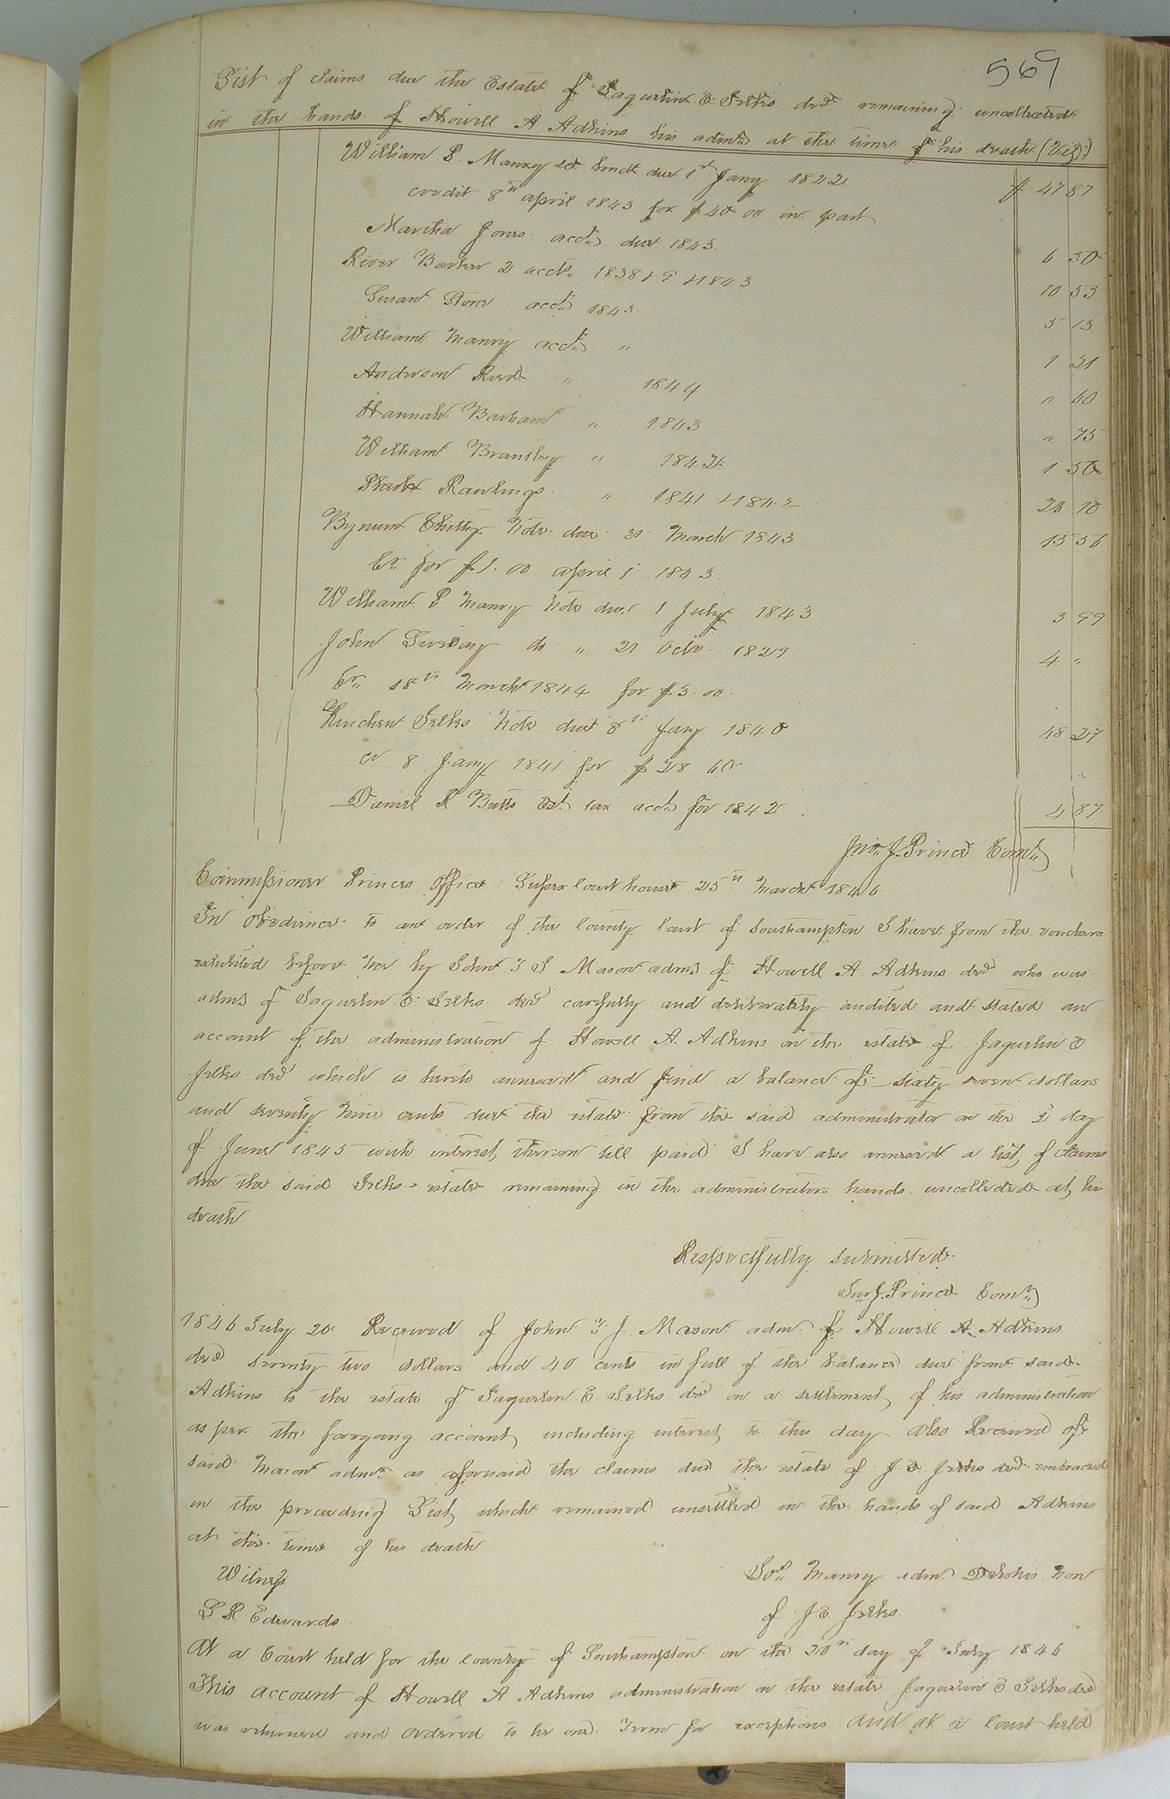 569
List of claims due the Estate of Jaqueline E Jelks decd remaining uncollected
in the hands of Howell A Adkins his admr at the time of his death (Viz)
William P. Manry due 1st Jany 1842 $ 47 87
credit 8th april 1843 for $40 00 in part
Martha Jones acct due 1843 6 50
River Barker 2 accts 1838 & 9 & 1843 10 53
Susan Stone acct 1843 5 13
William Manry acct " 1 21
Anderson Reid " 1844 " 60
Hannah Barham " 1843 " 75
William Brantley " 1842 1 50
Rawlings " 1841 & 1842 20 70
Bynum Chitty Note due 21 March 1843 15 56
Cr for $1.00 april 1 1843
William P Manry Note due 1 July 1843 3 99
John do " 21 Octo 1829 4 "
Cr 18th March 1844 for $3.00
Kinchen Jelks Note due 8th Jany 1840 48 27
cr 8 Jany 1841 for $28 60
Daniel R Butts Est tax acct for 1842 4 87
Jno. J. Prince Comr
Commissioner Princes Office Sussex Court house 25th March 1846
In obedience to an order of the County Court of Southampton I have from the vouchers
exhibited before me by John Y J Mason admr of Howell A Adkins decd who was
admr of Jaquelin E Jelks decd carefully and deliberately audited and stated an
account of the administration of Howell A. Adkins on the estate of Jaquelin E
Jelks decd which is hereto annexed and find a balance of sixty seven dollars
and seventy nine cents due the estate from the said administrator on the 1 day
of June 1845 with interest thereon till paid I have also annexed a list of claims
due the said Jelks estate remaining in the administrators hands uncollected at his
death
Respectfully submitted
Jno J. Prince Comr
1846 July 20 Received of John Y J. Mason adm. of Howell A. Adkins
decd seventy two dollars and 40 cents in full of the balance due from said
Adkins to the estate of Jaquelin E Jelks decd on a settlement of his administration
as per the foregoing account including interest to this day also Received of
said Mason admr as aforesaid the claims due the estate of J. E Jelks decd embraced
in the preceeding List which remained unsettled in the hands of said Adkins
at the time of his death
Witness Manry adm. De bonis non
S R Edwards of J E Jelks
At a Court held for the County of Southampton on the 20th day of July 1846
This account of Howell A Adkins administration on the estate Jaquelin E Jelks decd
was returned and ordered to lie one Term for exceptions And at a Court held